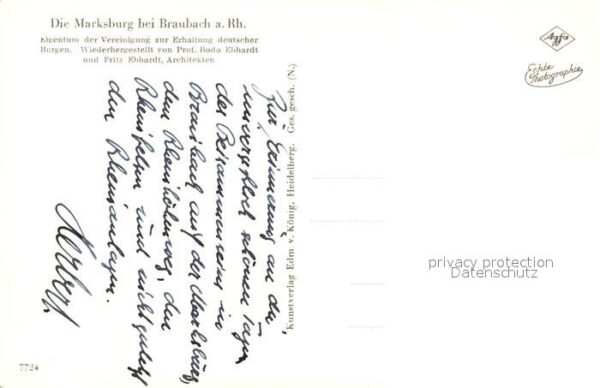 Die Marksburg bei Braubach a. Rh.
Eigentum der Vereinigung zur Erhaltung deutscher
Burgen. Wiederhergestellt von Prof. Bodo Ebhardt
und Fritz Ebhardt, Architekten
Agfa
Echte
Photographie
Zur Erinnerung an die
unvergeßlich schönen Tage
des Beisammenseins in
Braubach auf der Marksburg,
dem Rheinhöhenweg, den
Rheinfelsen und nicht zuletzt
den Rheinanlagen.
Kunstverlag Edm. v. König, Heidelberg. Ges. gesch. (N.)
privacy protection
Datenschutz
7724